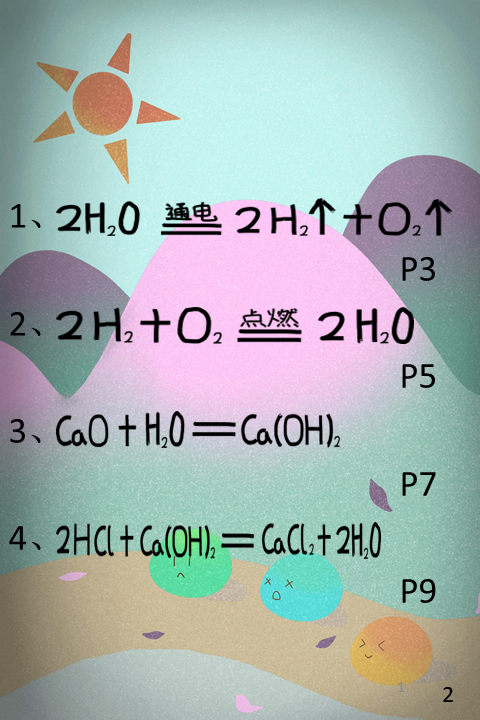 1、2H₂O 通电 2H₂↑+O₂↑
P3
2、2H₂+O₂ 点燃 2H₂O
P5
3、CaO+H₂O═Ca(OH)₂
P7
4、2HCl+Ca(OH)₂═CaCl₂+2H₂O
P9
1
2